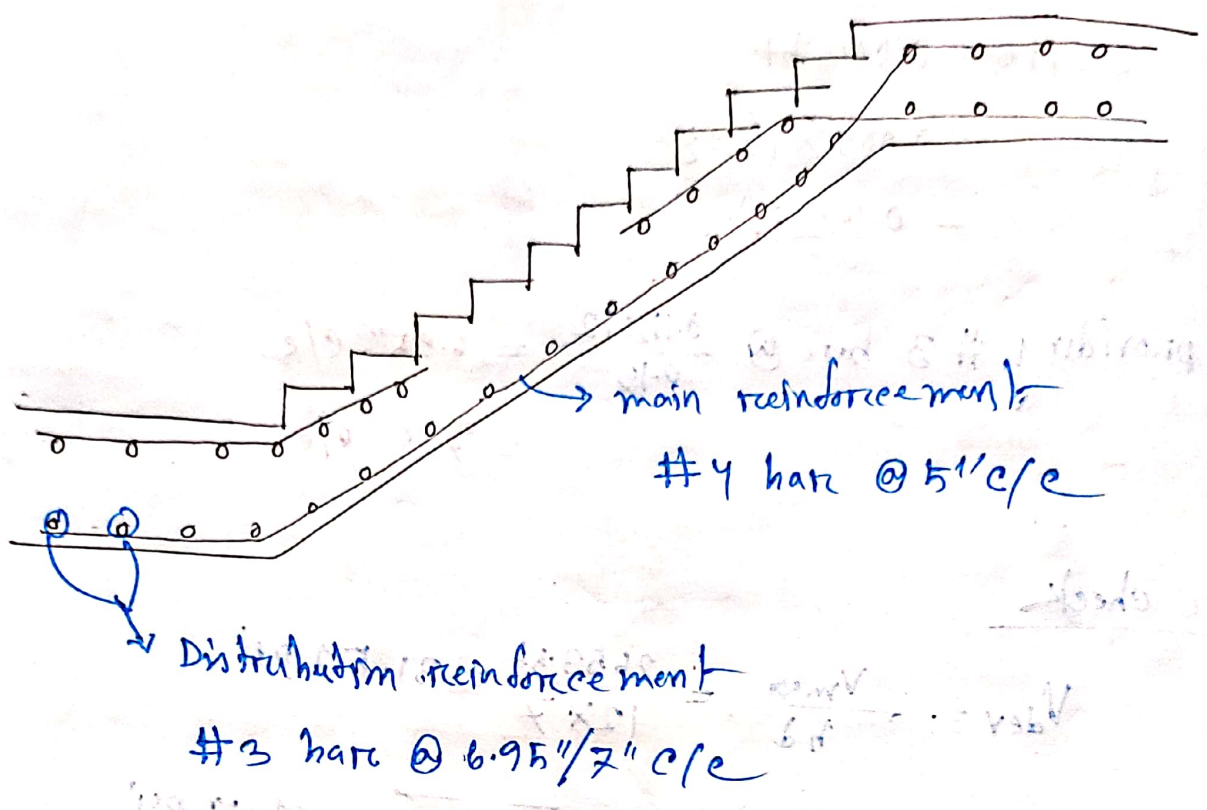 main reinforcement
#4 bar @ 5" c/c
Distribution reinforcement
#3 bar @ 6.95"/7" c/c
check